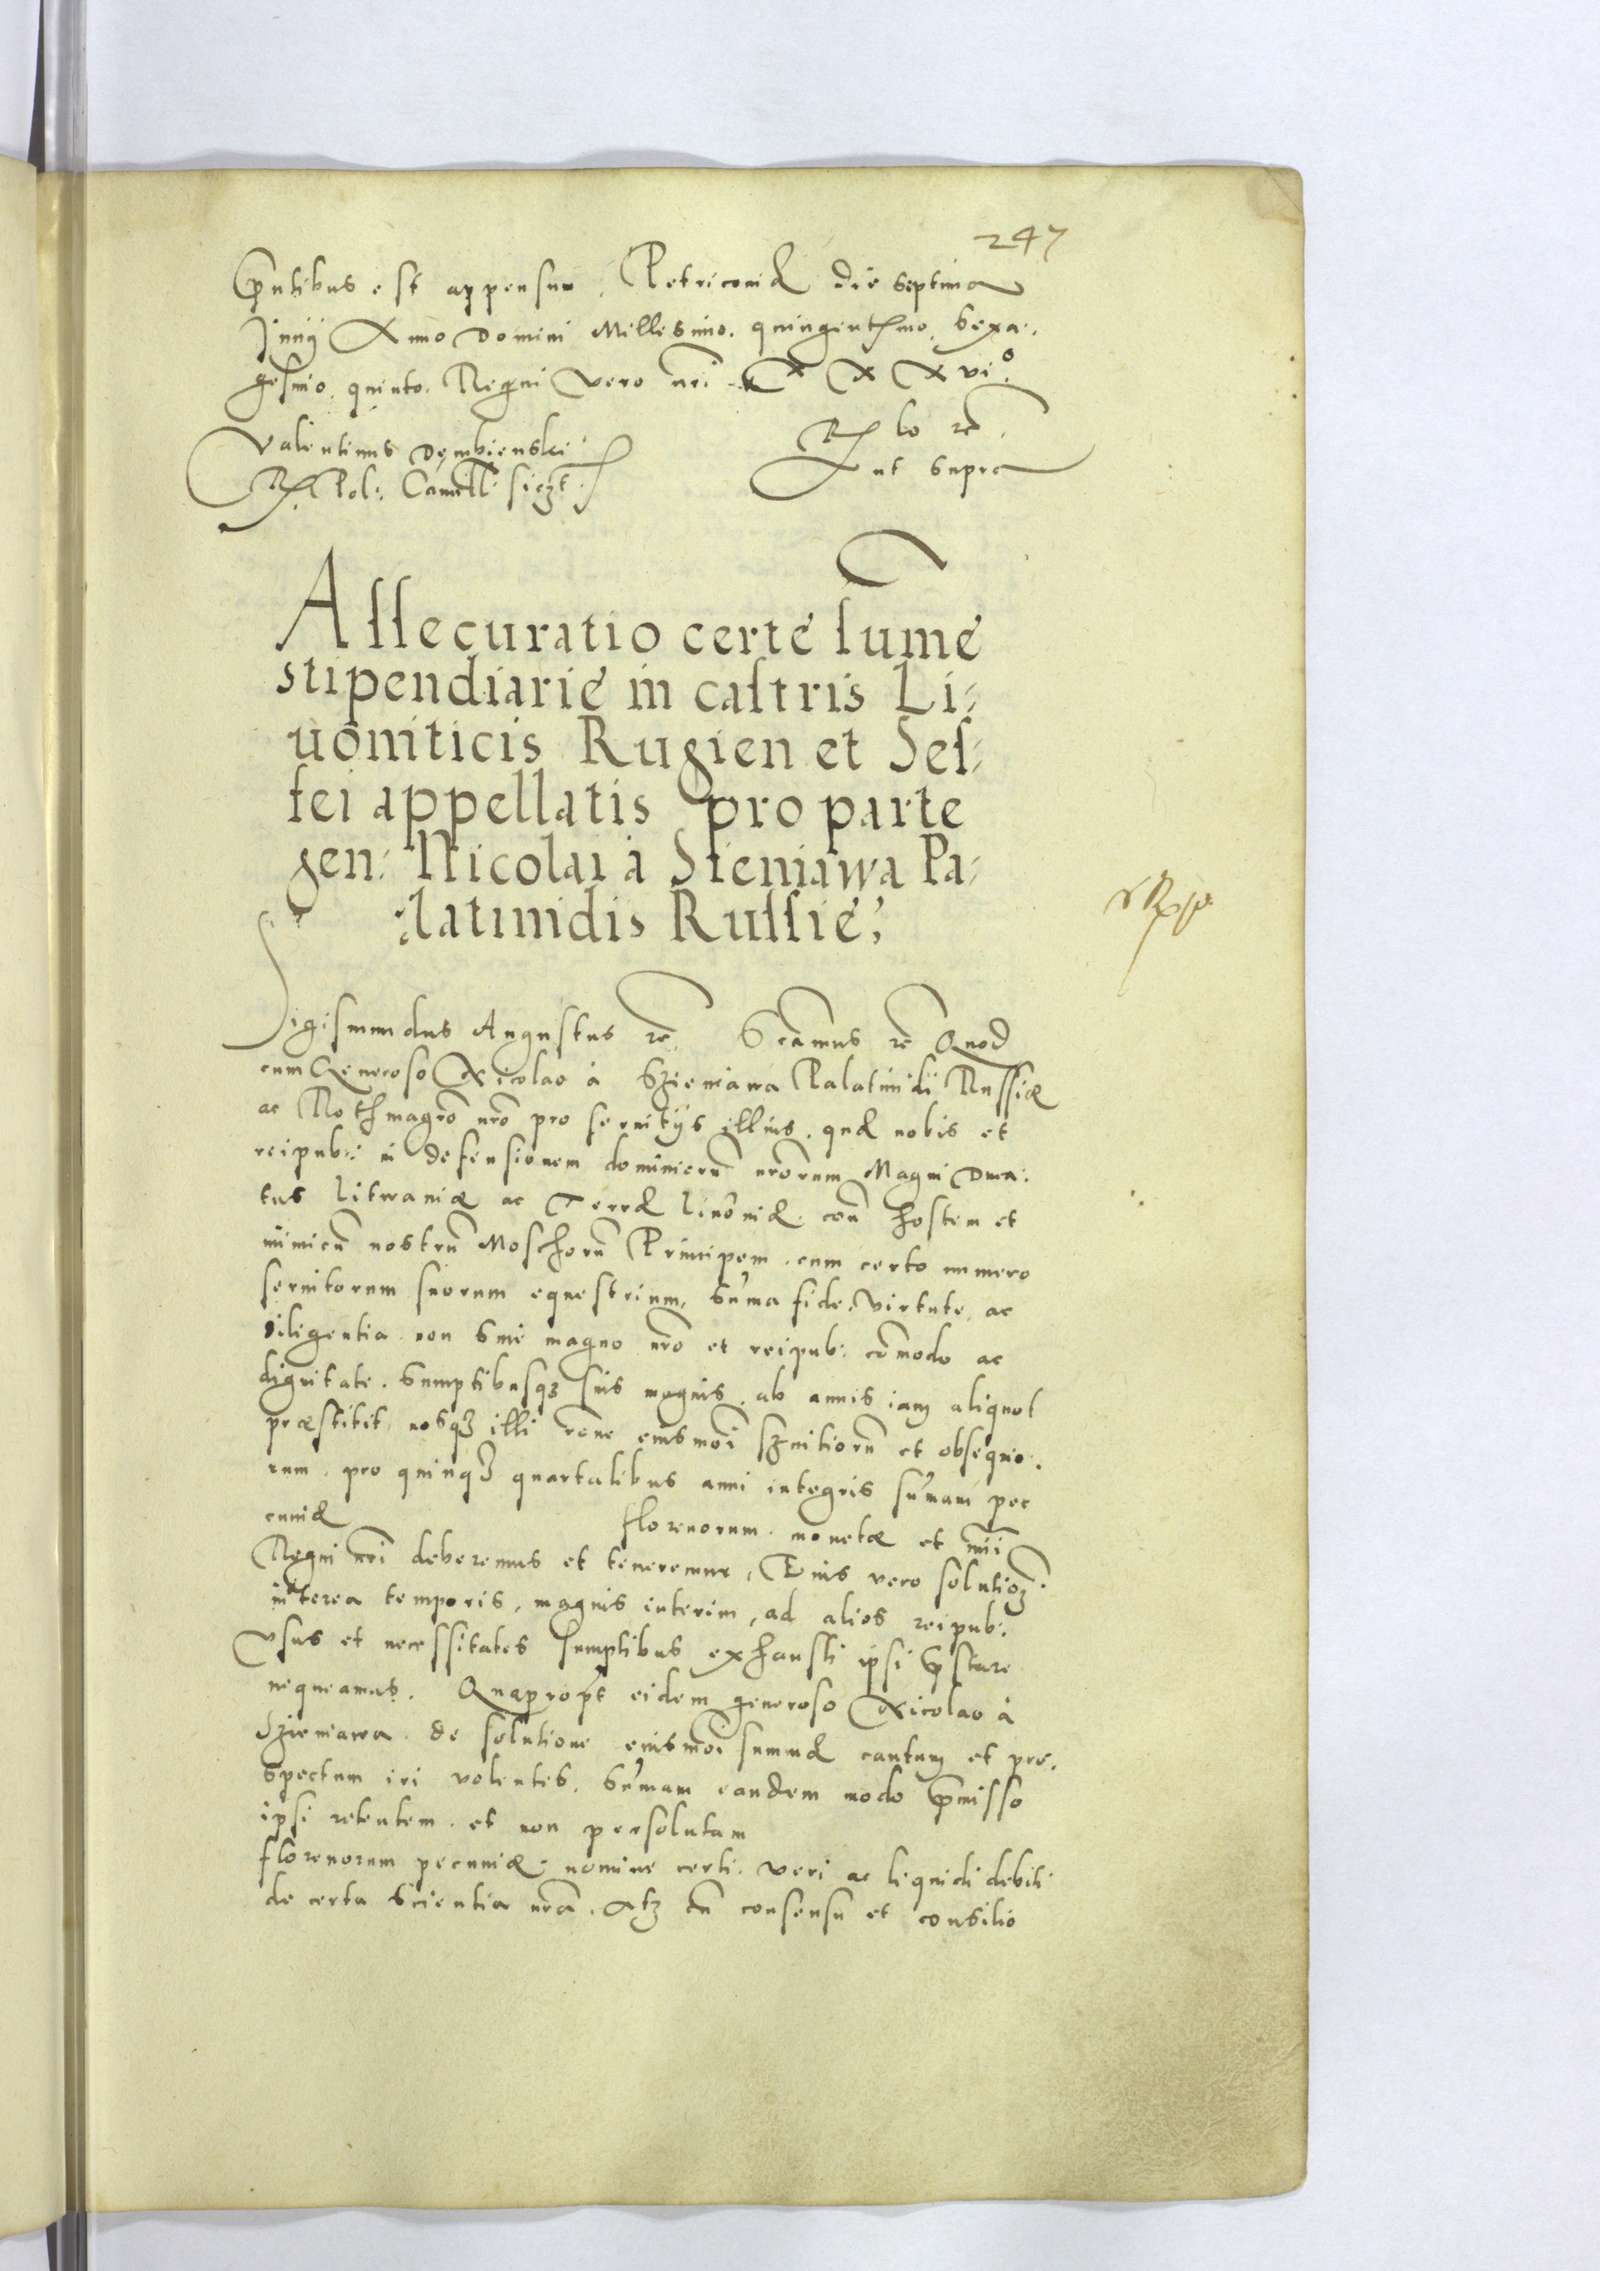 247
p̄ntibus est appensum. Petricoviæ die septima
Junij Anno Domini Millesimo. quingentesimo, sexa:
gesimo. quinto. Regni vero nr̄i XXXVIº.
Valentinus Dembienski
R. Pol: Cancell:
Rlo rc̄.
ut supra
Assecuratio certe sum̄e
stipendiarie in castris Li:
uoniticis Rugien et Sel:
fei appellatis pro parte
gen: Nicolai à Sieniawa Pa:
:latinidis Russie,
Sigismundus Augustus rc̄. Sc̄amus rc̄ Quod
cum Generoso Nicolao à Szieniawa Palatinidi Russiæ
ac Rothmagr̄o nr̄o pro seruitijs illius, quæ nobis et
reipub: in defensionem dominiorū nr̄orum Magni Duca:
tus Litwaniæ ac Terræ Liuoniæ. con̄ hostem et
inimicū nostrū Moschorū Principem. cum certo numero
seruitorum suorum equestrium, sum̄a fide, virtute, ac
diligentia non sine magno nr̄o et reipub: com̄odo ac
dignitate. sumptibusqȝ suis magnis. ab annis iam aliquot
præstitit, nosqȝ illi rōne eiusmōi seruitiorū et obsequio:
rum. pro quinqȝ quartalibus anni integris sum̄am pec
cuniæ florenorum. monetæ et nūi
Regni nr̄i deberemus et teneremur, Eius vero solutioȝ
interea temporis, magnis interim, ad alios reipub:
vsus et necessitates sumptibus exhausti ipsi p̄stare
nequeamus. Quaproṗt eidem generoso Nicolao à
Szieniawa de solutione eiusmōi summæ cautum et pro:
spectum iri volentes. sum̄am eandem modo p̄misso
ipsi retentem. et non persolutam
florenorum pecuniæ. nomine certi. veri ac liquidi debiti
de certa scientia nr̄a. atȝ de consensu et consilio